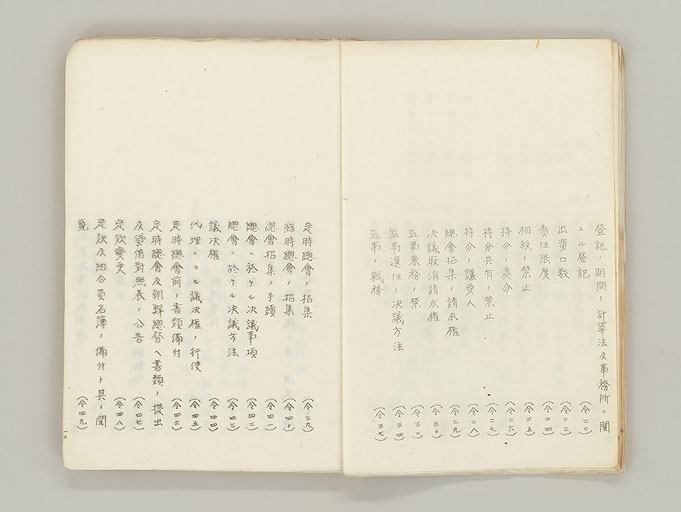 登記ノ期間ノ計算法及事務所ニ関
スル登記 (令二二)
出資口数 (令二三)
責任限度 (令二五)
相殺ノ禁止 (令二六)
持分ノ處分 (令二七)
持分共有ノ禁止
持分ノ讓受人 (令二八)
總會招集ノ請求權 (令二九)
決議取消請求權 (令三〇)
監事兼務ノ禁 (令三三)
監事選任ノ決議方法 (令三四)
監事ノ職務 (令三七)
定時總會ノ招集 (令三九)
臨時總會ノ招集 (令四〇)
總會招集ノ手續 (令四一)
總會ニ於ケル決議事項 (令四二)
總會ニ於ケル決議方法 (令四三)
議決權 (令四四)
代理ニヨル議決權ノ行使 (令四五)
定時總會前ノ書類備付 (令四六)
定時總會及朝鮮總督ヘ書類ノ提出
及貸借對照表ノ公告 (令四七)
定款変更 (令四八)
定款及組合員名簿ノ備付ト其ノ閲
覧 (令四九)